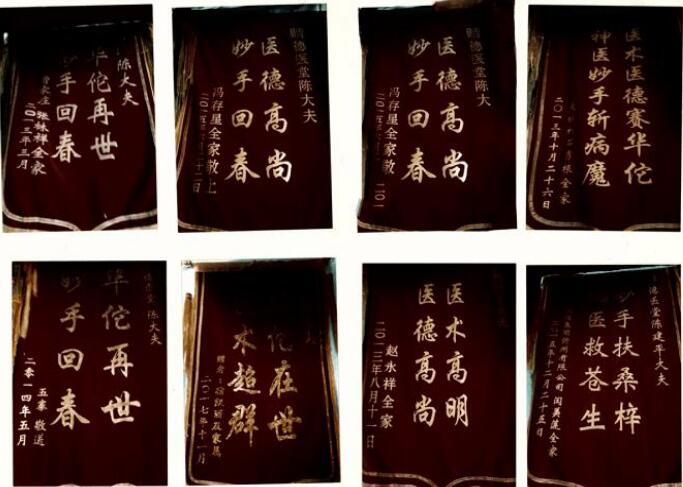 陈大夫
华佗再世
妙手回春
张林祥全家
二〇一三年三月
赠德医堂陈大夫
医德高尚
妙手回春
冯存星全家敬上
赠德医堂陈大夫
医德高尚
妙手回春
冯存星全家敬
医术医德赛华佗
神医妙手斩病魔
全家
二〇一三年十月二十六日
陈大夫
华佗再世
妙手回春
五泰 敬送
二零一四年五月
佗在世
术超群
二〇一七年十一月
医术高明
医德高尚
赵永祥全家
二〇一三年八月十一日
德医堂陈建平大夫
妙手扶桑梓
医救苍生
二〇一五年十二月二十五日